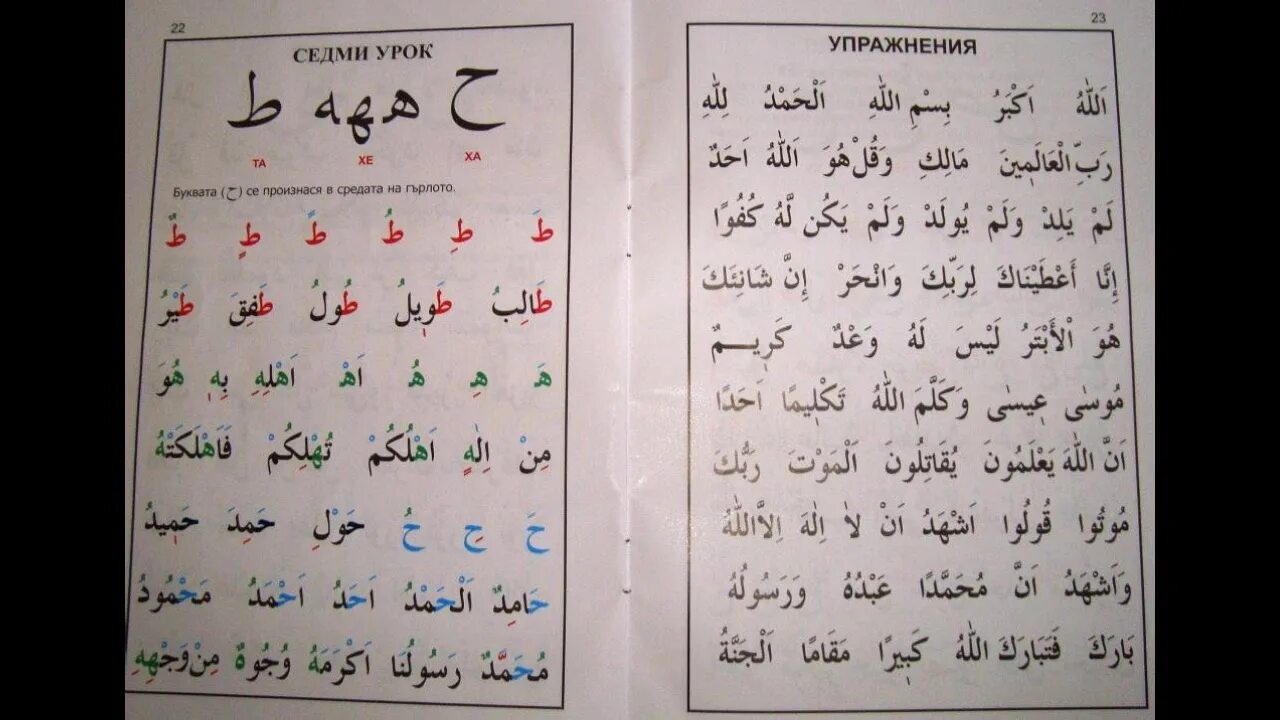 22
СЕДМИ УРОК
ح ههه ط
ТА ХЕ ХА
Буквата (ح) се произнася в средата на гърлото.
طَ طِ طُ طً طٍ طٌ
طَالِبُ طَوِيلُ طُولُ طَفِقَ طَيْرُ
هَ هِ هُ اَهْ اَهْلِهِ بِهِ هُوَ
مِنْ اِلٰهٍ اَهْلُكُمْ تُهْلِكُمْ فَاَهْلَكَتْهُ
حَ حِ حُ حَوْلِ حَمِدَ حَمِيدُ
حَامِدٌ اَلْحَمْدُ اَحَدُ اَحْمَدُ مَحْمُودُ
مُحَمَّدٌ رَسُولُنَا اَكْرَمَهُ وُجُوهٌ مِنْ وَجْهِهِ
23
УПРАЖНЕНИЯ
اَللّٰهُ اَكْبَرُ بِسْمِ اللّٰهِ اَلْحَمْدُ لِلّٰهِ
رَبِّ الْعَالَمِينَ مَالِكِ وَقُلْ هُوَ اَللّٰهُ اَحَدٌ
لَمْ يَلِدْ وَلَمْ يُولَدْ وَلَمْ يَكُن لَّهُ كُفُوًا
إِنَّا أَعْطَيْنَاكَ لِرَبِّكَ وَانْحَرْ إِنَّ شَانِئَكَ
هُوَ الْأَبْتَرُ لَيْسَ لَهُ وَعْدٌ كَرِيـــمٌ
مُوسٰى عِيسٰى وَكَلَّمَ اللّٰهُ تَكْلِيمًا اَحَدًا
اَنَّ اللّٰهَ يَعْلَمُونَ يُقَاتِلُونَ اَلْمَوْتَ رَبُّكَ
مُوتُوا قُولُوا اَشْهَدُ اَنْ لاٰ اِلٰهَ اِلاَّ اللّٰهُ
وَاَشْهَدُ اَنَّ مُحَمَّدًا عَبْدُهُ وَرَسُولُهُ
بَارَكَ فَتَبَارَكَ اللّٰهُ كَبِيرًا مَقَامًا اَلْجَنَّةُ